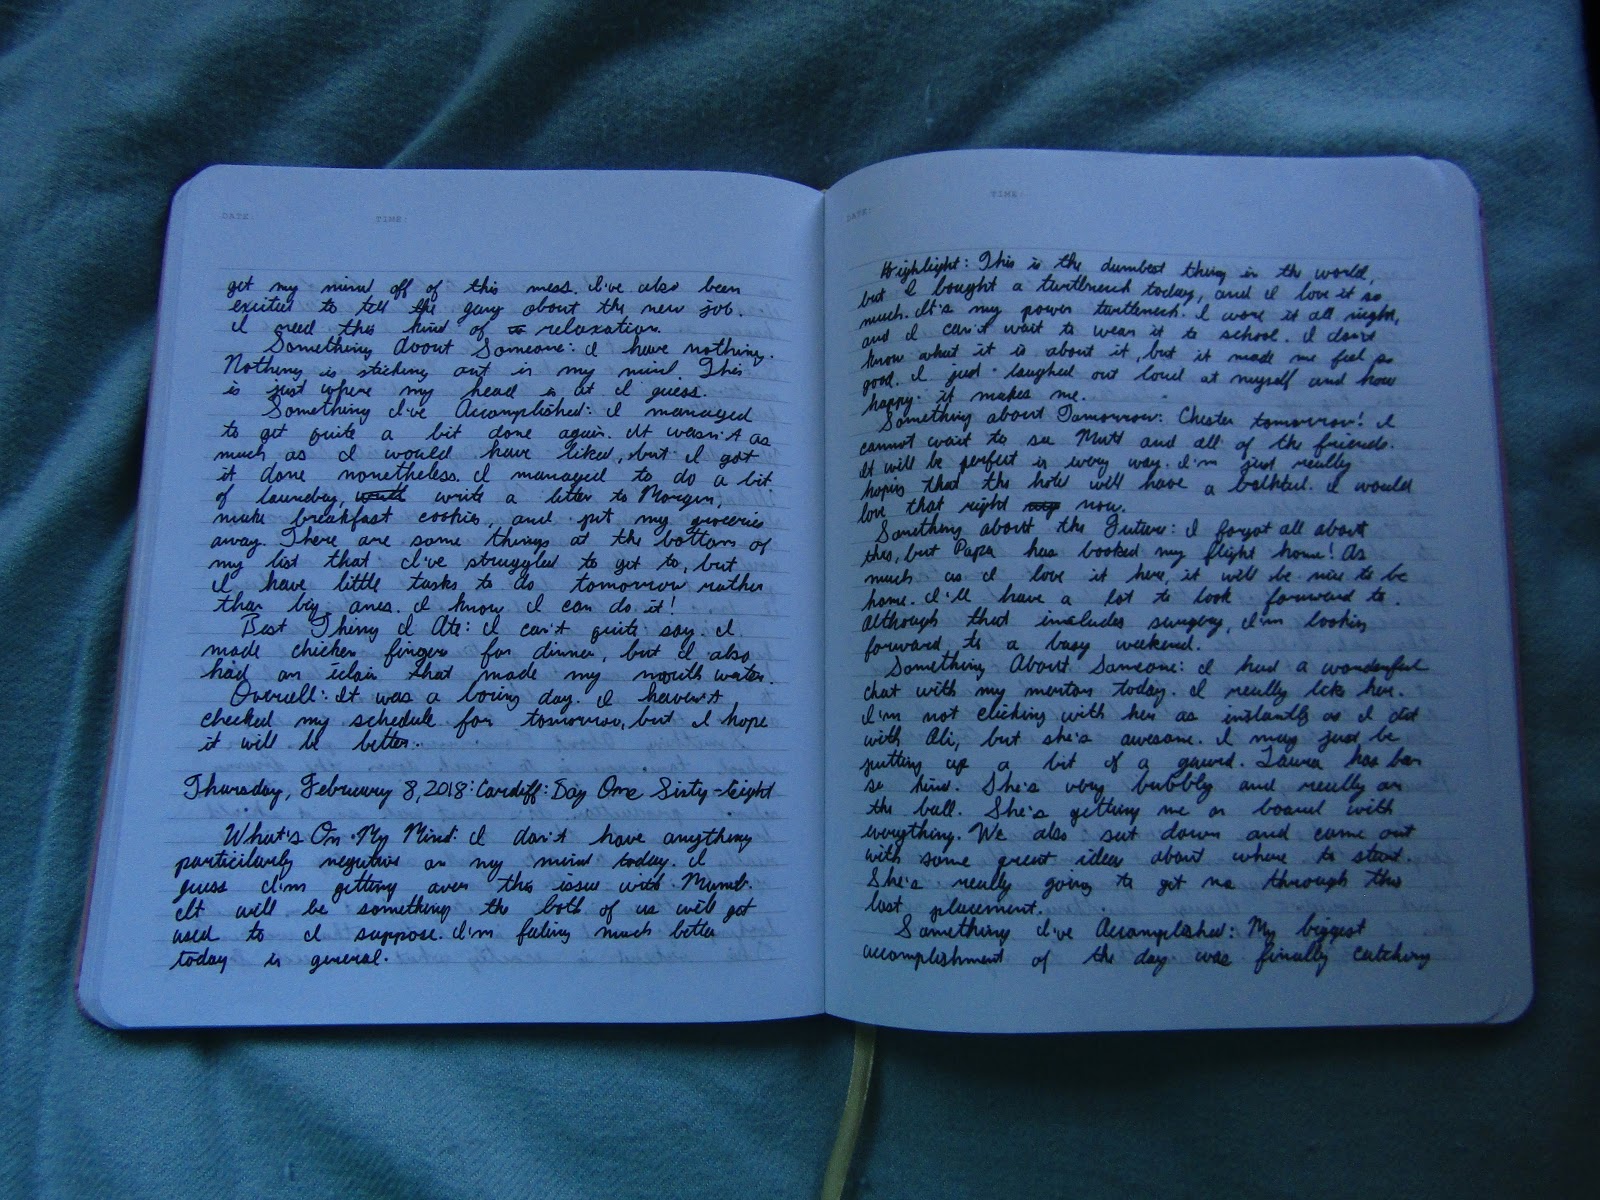 DATE: TIME:
get my mind off of this mess. I've also been
excited to tell the gang about the new job.
I need this kind of relaxation.
Something About Someone: I have nothing.
Nothing is sticking out in my mind. This
is just where my head is at I guess.
Something I've Accomplished: I managed
to get quite a bit done again. It wasn't as
much as I would have liked, but I got
it done nonetheless. I managed to do a bit
of laundry, write a letter to Morgin,
make breakfast cookies, and put my groceries
away. There are some things at the bottom of
my list that I've struggled to get to, but
I have little tasks to do tomorrow rather
than big ones. I know I can do it!
Best Thing I Ate: I can't quite say. I
made chicken fingers for dinner, but I also
had an éclair that made my mouth water.
Overall: It was a boring day. I haven't
checked my schedule for tomorrow, but I hope
it will be better.
Thursday, February 8, 2018: Cardiff: Day One Sixty-Eight
What's On My Mind: I don't have anything
particilarly negative on my mind today. I
guess I'm getting over this issue with Mumb.
It will be something the both of us will get
used to I suppose. I'm feeling much better
today in general.
DATE: TIME:
Highlight: This is the dumbest thing in the world,
but I bought a turtleneck today, and I love it so
much. It's my power turtleneck. I wore it all night,
and I can't wait to wear it to school. I don't
know what it is about it, but it made me feel so
good. I just laughed out loud at myself and how
happy it makes me.
Something about Tomorrow: Chester tomorrow! I
cannot wait to see Mutt and all of the friends.
It will be perfect in every way. I'm just really
hoping that the hotel will have a bathtub. I would
love that right now.
Something about the Future: I forgot all about
this, but Papa has booked my flight home! As
much as I love it here, it will be nice to be
home. I'll have a lot to look forward to.
Although that includes surgery, I'm looking
forward to a busy weekend.
Something About Someone: I had a wonderful
chat with my mentor today. I really like her.
I'm not clicking with her as instantly as I did
with Ali, but she's awesome. I may just be
putting up a bit of a guard. Laura has been
so kind. She's very bubbly and really on
the ball. She's getting me on board with
everything. We also sat down and came out
with some great ideas about where to start.
She's really going to get me through this
last placement.
Something I've Accomplished: My biggest
accomplishment of the day was finally catching